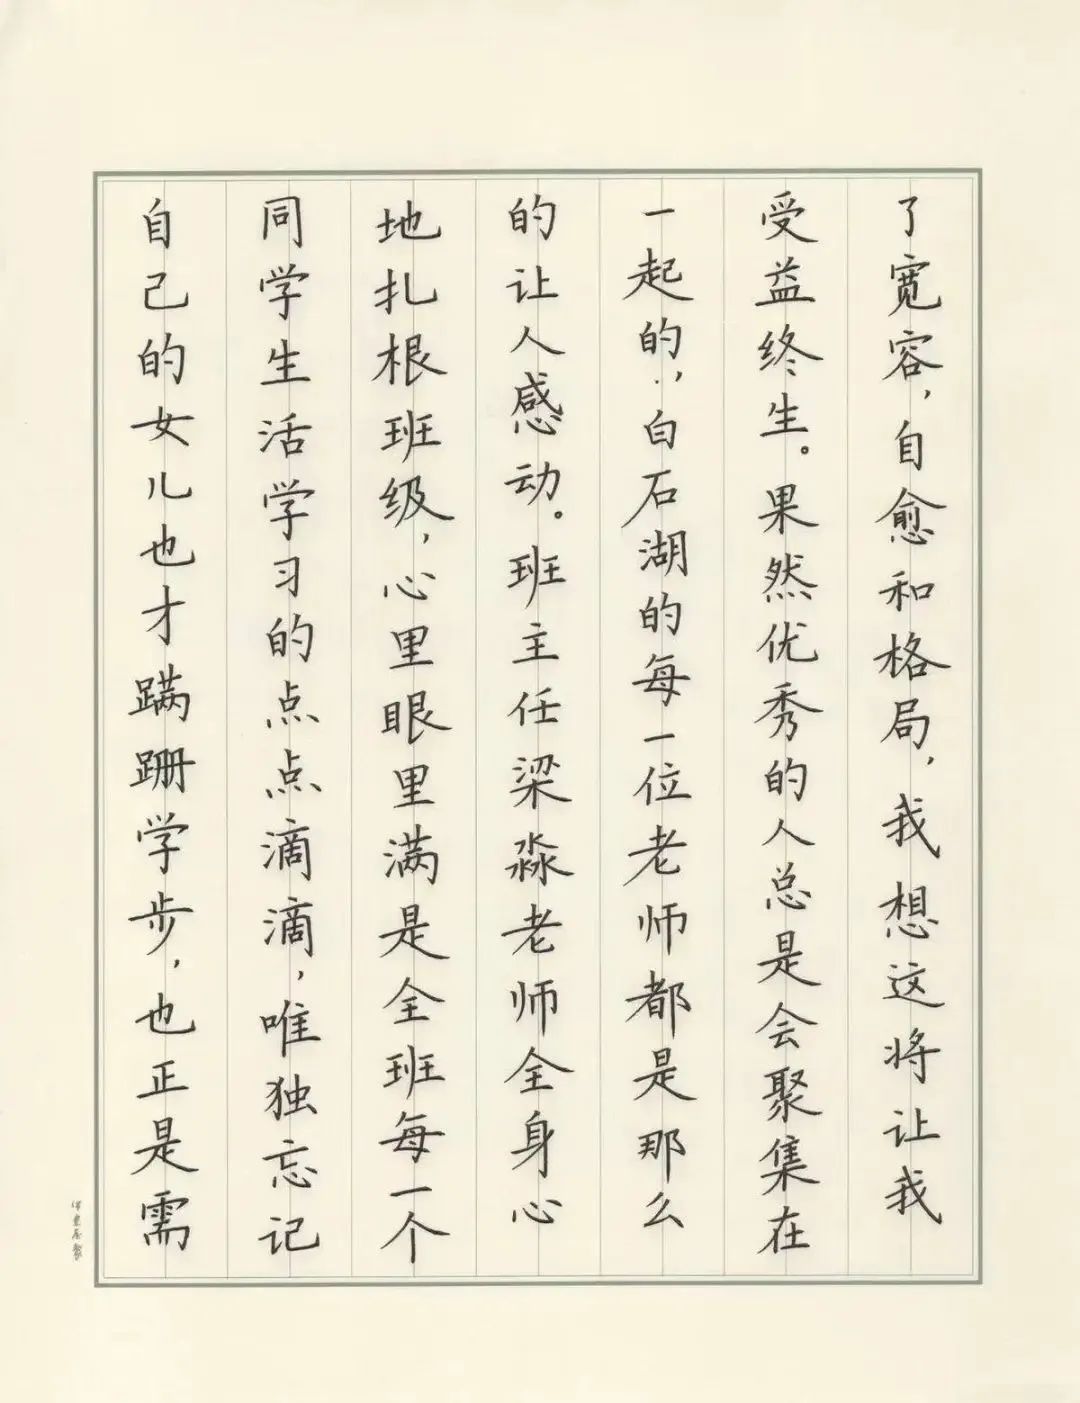 了宽容，自愈和格局，我想这将让我
受益终生。果然优秀的人总是会聚集在
一起的，白石湖的每一位老师都是那么
的让人感动。班主任梁淼老师全身心
地扎根班级，心里眼里满是全班每一个
同学生活学习的点点滴滴，唯独忘记
自己的女儿也才蹒跚学步，也正是需